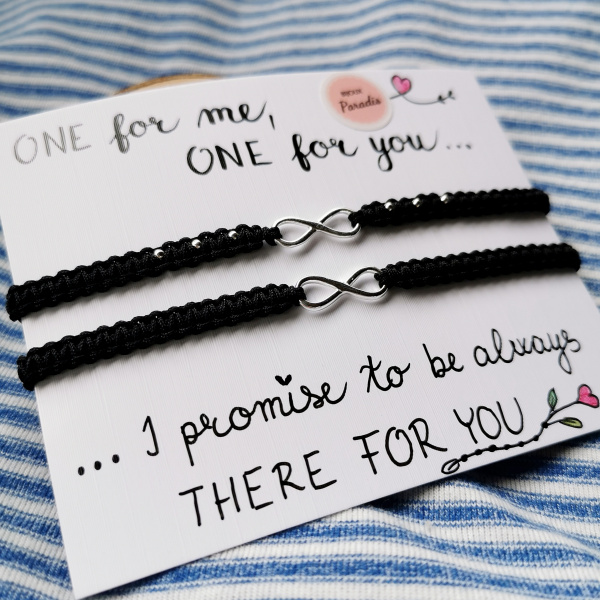 ONE for me,
ONE for you...
Paradis
... I promise to be always
THERE FOR YOU